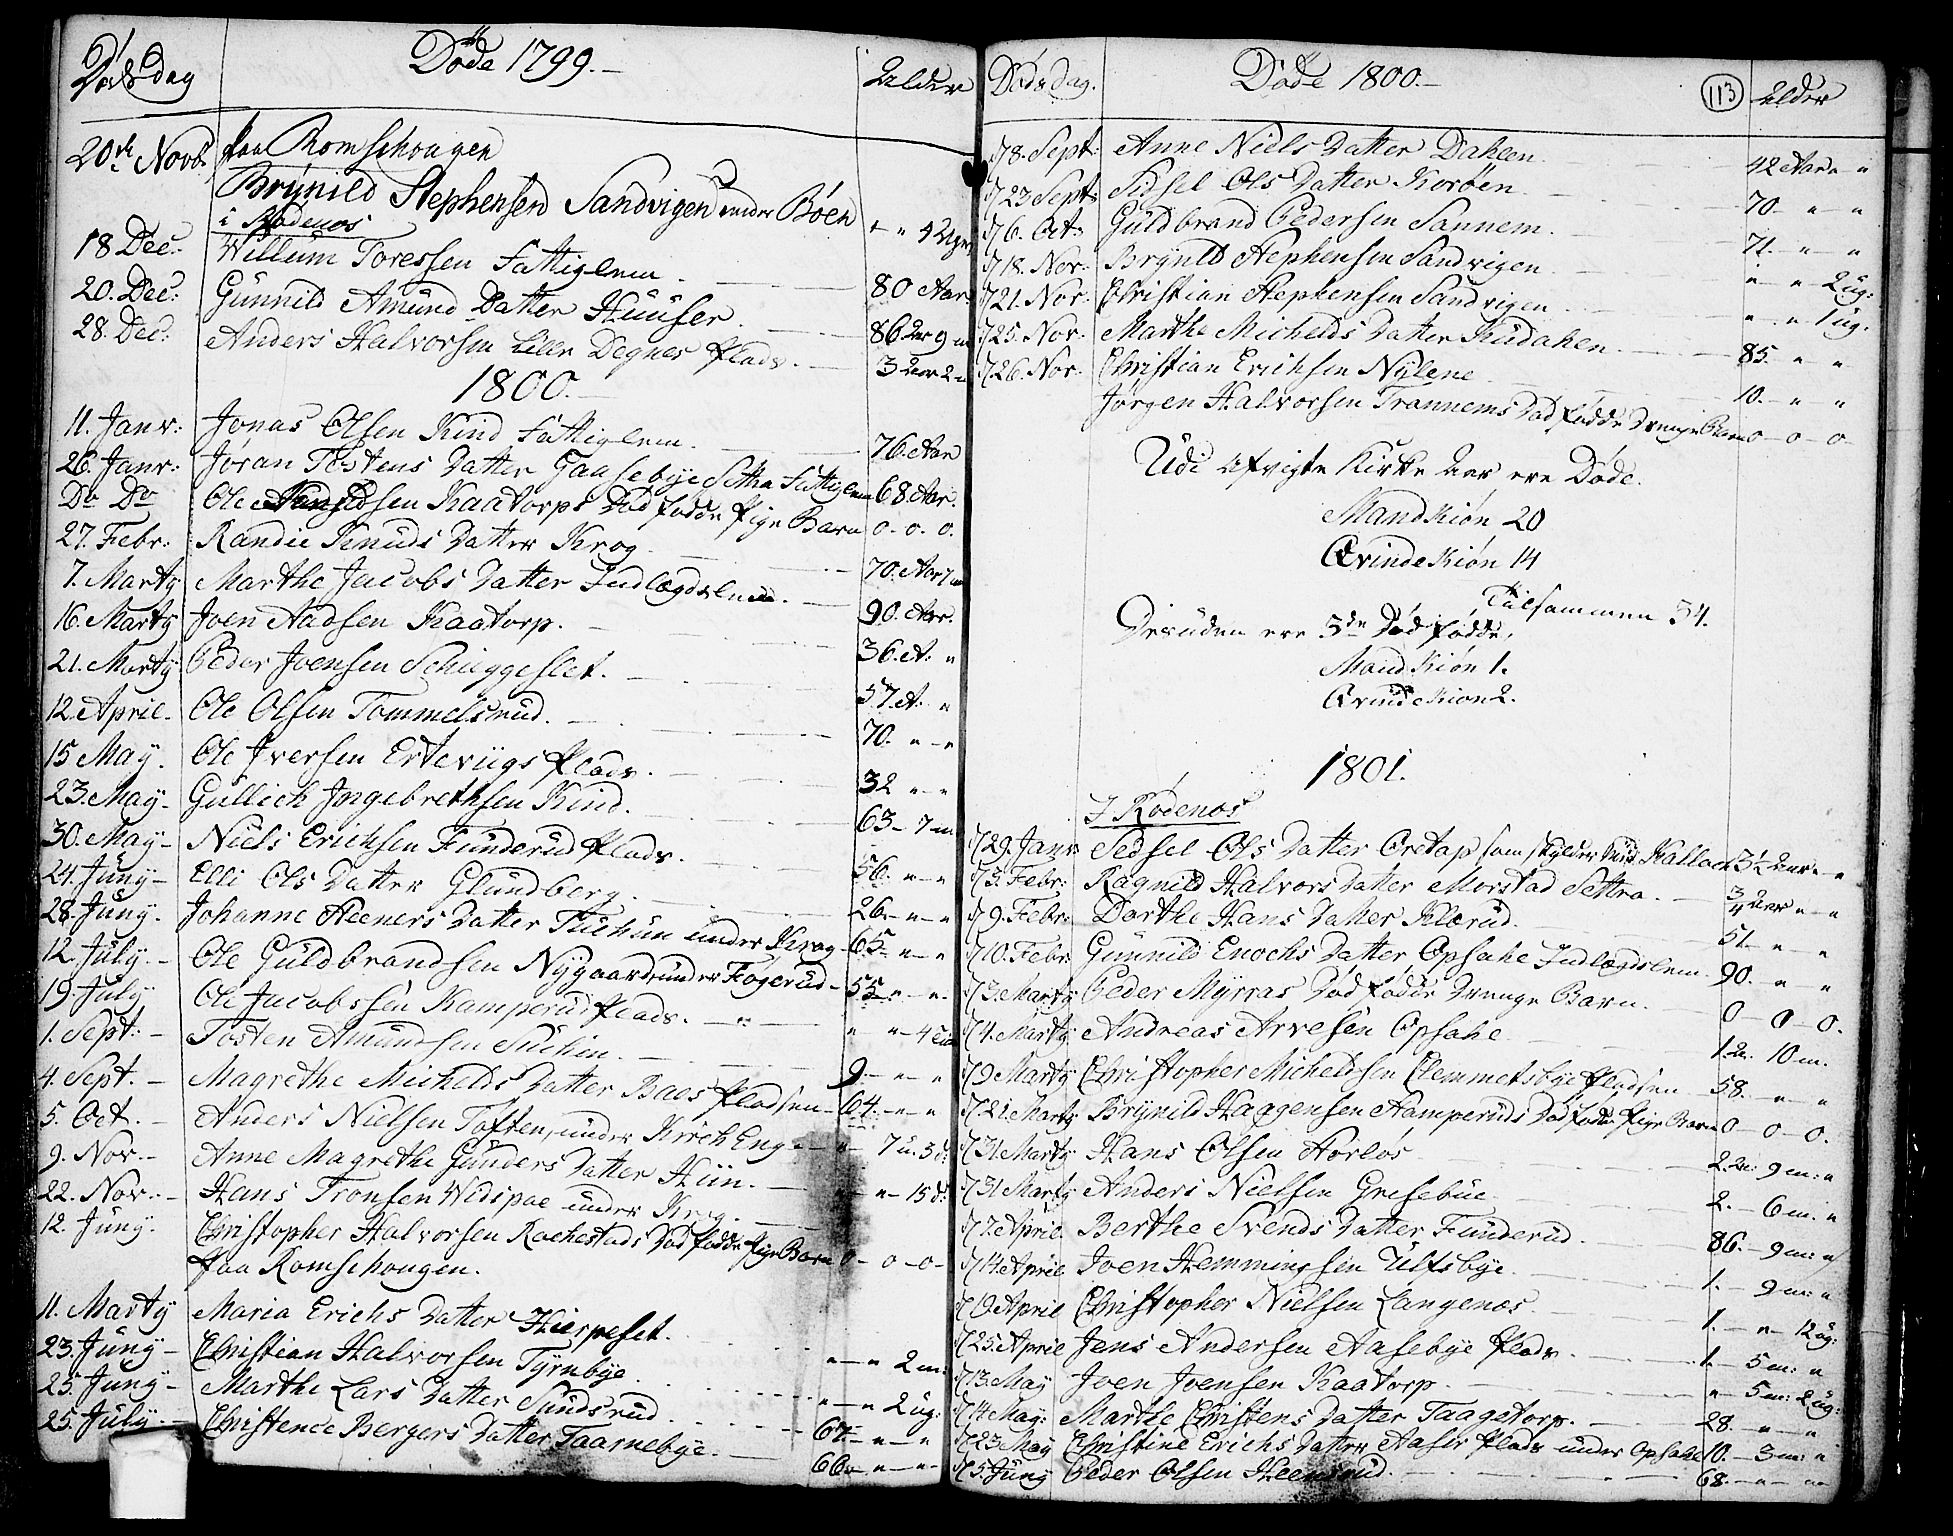 Dødsdag Døde 1799.– Alder
20de Novb. paa Romschougen
Brÿnild Stephensen Sandvigen under Böen " " 4 Uger
i Rødenæs
18 Dec: Willum Toressen Fattiglem 80 Aar.
20. Dec: Gunnild Amund Datter Huuser 86 Aar 9 m
28. Dec: Anders Halvorsen Lille Degnes Plads. 3 Aar 2 m
1800.
11. Janv: Jonas Olsen Kind Fattiglem. 76. Aar
26. Janv: Jøran Tostens Datter Gaasebye Settre Fattiglem 68. Aar.
Do Do Ole Amundsen Kaatorps Død fødde Pige Barn 0. 0. 0.
27. Febr: Randie Knuds Datter Krog 70. Aar 7 m
7. Marty Marthe Jacobs Datter Indlægdslem. 90. Aar.
16. Marty Joen Aadsen Kaatorp. 36. A: "
21. Marty Peder Joensen Schiæggeslet. 57. A. "
12. April. Ole Olsen Tommelsrud. 70. " – "
15 May. Ole Iversen Erteviigs Plads. 32 " – "
23. May– Gullich Ingebrethsen Kind. 63– 7 m
30. May– Niels Erichsen Funderud Plads. 56. " – "
24. Juny– Elli Ols Datter Glundberg. 26. – " – "
28. Juny. Johanne Steeners Datter Stichun under Krog 65 – " – "
12. July. – Ole Guldbrandsen Nygaard under Fogerud– 55 – " – "
19. July Ole Jacobssen Kamperud Plads. – " – " " – 4
1. Sept: – Tosten Amundsen Suchin. 9. – " "
4. Sept. – Magrethe Michelds Datter Baes Pladsen– 64. – " – "
5. Oct. – Anders Nielsen Toften, under Kirch Eng – " – 7 u. 3 d:
9. Nov.– Anne Magrethe Gunders Datter Hiin. – " – 15 d:
22. Nov.– Hans Tronsen Widspae under Krog.
12. Juny. Christopher Halvorsen Rachestads Død fødde Pige Barn 0– 0 –0–
Paa Romschougen.
11. Marty Maria Erichs Datter Hierpeset. " – " 2 m:
23. Juny– Christian Halvorsen Tyrnbye " – " 2 ug:
25. Juny– Marthe Lars Datter Sundsrud 67 – " – "
25. July.– Christence Bergers Datter Taarnebye. 66. – " – "
Dødsdag. Døde 1800.– 113 Alder
8. Sept: Anne Niels Datter Dahlen 42 Aar " "
23 Sept: Sidsel Ols Datter Korøen 70– " – "
6. Oct: Guldbrand Pedersen Sannem. 71. – " – "
18. Nov: Brynild Stephensen Sandvigen " – " 2 ug:
21. Nov: Christian Stephensen Sandvigen " – " 1 ug.
25. Nov: Marthe Michelds Datter Rudahen 85. " "
26. Nov: Christian Erichsen Nylene 10. – " – "
Jørgen Halvorsen Trannems Død fødde Drenge Barn 0– 0– 0–
Udi Afvigte Kirke Aar ere Døde.
Mandkiøn 20
Qvindekiøn 14
Tilsammen 34.
Desuden ere 3de Død fødde,
Mandkiøn 1.
Qvindekiøn 2.
1801.
I Rødenæs
29. Janv: Sedsel Ols Datter Oretop som 3½ Aar " – "
3. Febr: Ragnild Halvors Datter Morstad Settra. – ¾ Aar " – "
9. Febr: Dorthe Hans Datter Klærud. 51. – " – "
10. Febr: Gunnild Enochs Datter Opsahe Indlægdslem 90. – " "
3. Marty Peder Myrras Død fødde Drenge Barn. 0– 0– 0.
4. Marty Andreas Arvesen Opsahe 1. a. 10 m.
9 Marty Christopher Micheldsen Clemmetsbye Pladsen 58. – " – "
21. Marty Brynild Haagensen Hamperuds Død fødde Pige Barn 0– 0– 0.
31. Marty Hans Olsen Horløs 2. a: 9 m: "
31. Marty Anders Nielsen Gresebue 2. – 6 m: "
7. April Berthe Svends Datter Funderud. 86. – 9 m: "
14. April Joen Hemmingsen Ulfsbye 1. – 9 m: "
19 April Christopher Nielsen Langenæs 1. – " – 12 ug:
25. April Jens Andersen Aasebye Plads 1. – 5 m: "
13. May Joen Joensen Kaatorp. " – 5 m: 2 ug:
14. May: Marthe Christens Datter Taagetorp. 28. – " – "
23. May Christine Erichs Datter Aaser Plads under Opsahe 10. – 3 m: "
5. Juny Peder Olsen Heensrud 68. – " – "